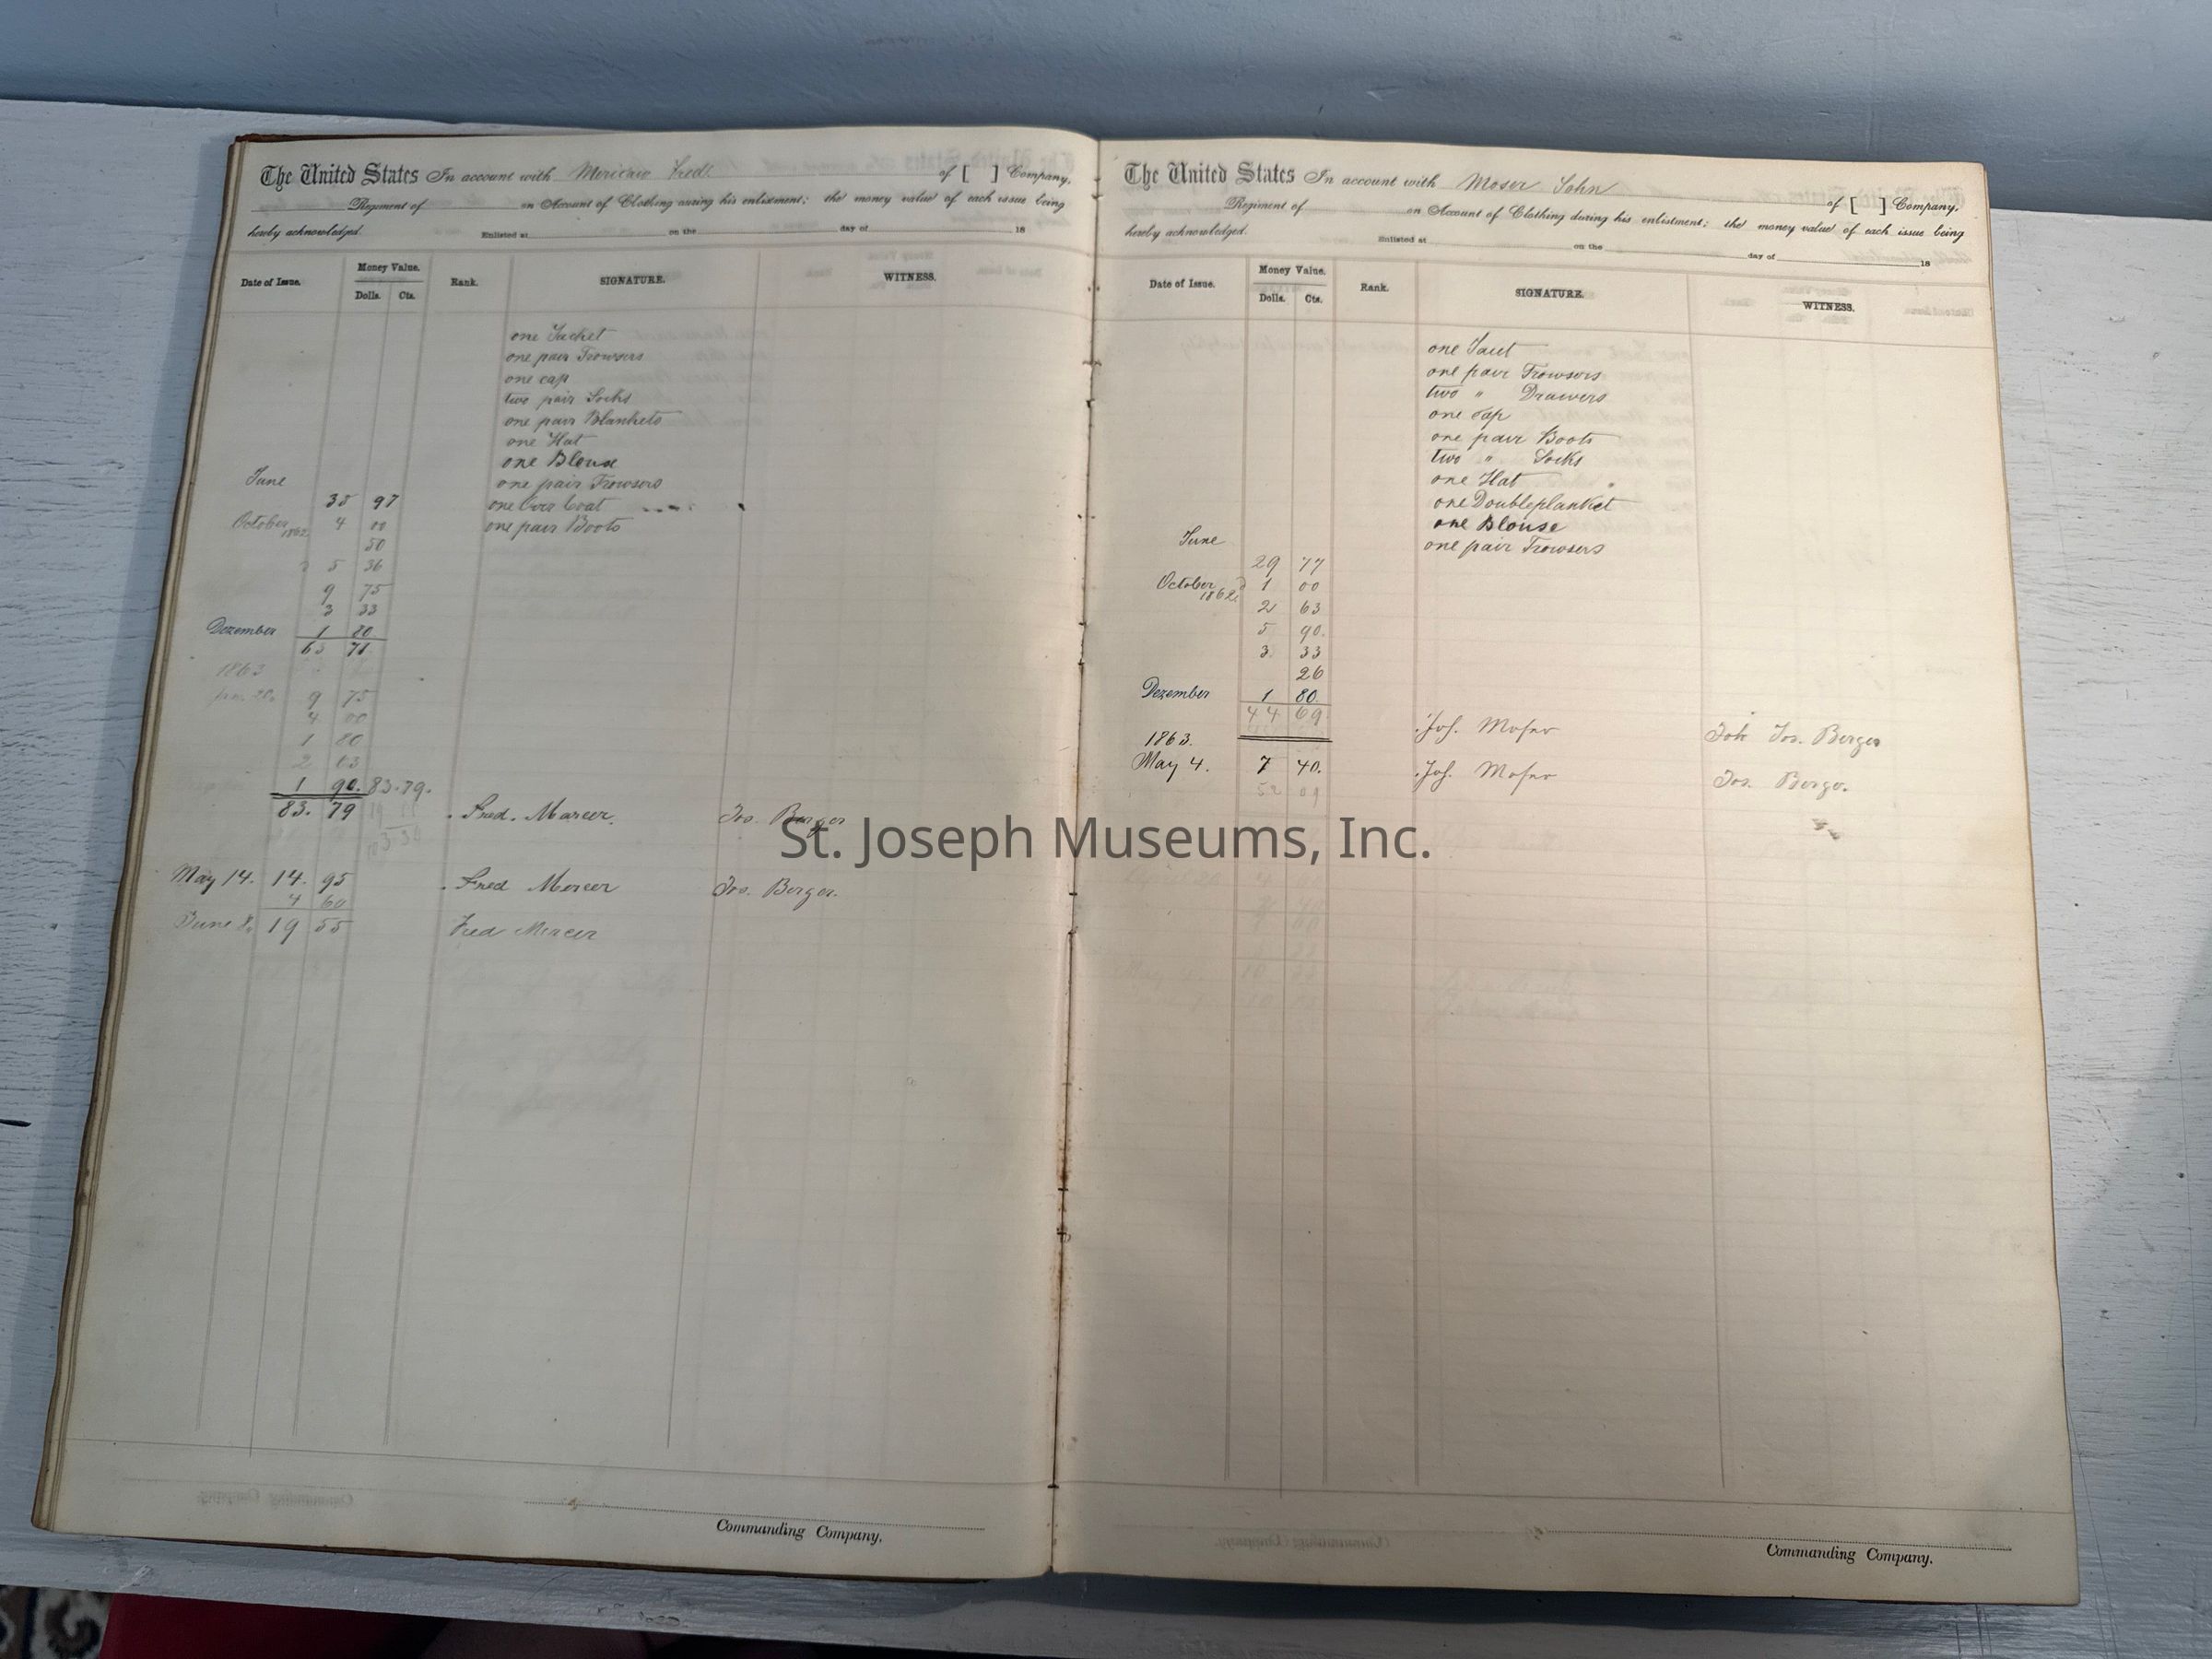 The United States In account with Fred of [ ] Company,
Regiment of on Account of Clothing during his enlistment; the money value of each issue being
hereby acknowledged. Enlisted at on the day of 18
Date of Issue. Money Value. Dolls. Cts. Rank. SIGNATURE. WITNESS.
one Jacket
one pair Trowsers
one cap
two pair Socks
one pair Blankets
one Hat
one Blouse
June one pair Trowsers
35 97 one Over Coat
October 1862 4 00 one pair Boots
50
5 36
9 75
3 33
Dezember 1 80
65 71
1863
Jan. 28. 9 75
4 00
1 80
2 63
1 90. 83.79.
83. 79 Fred. Mercer. Jos. Berger
May 14. 14. 95 Fred Mercer Jos. Berger.
4 60
June 8. 19 55 Fred Mercer
Commanding Company.
The United States In account with Moser John of [ ] Company,
Regiment of on Account of Clothing during his enlistment; the money value of each issue being
hereby acknowledged. Enlisted at on the day of 18
Date of Issue. Money Value. Dolls. Cts. Rank. SIGNATURE. WITNESS.
one
one pair Trowsers
two " Drawers
one Cap
one pair Boots
two " Socks
one Hat
one Doubleplanket
one Blouse
June one pair Trowsers
29 77
October 1862 1 00
2 63
5 90.
3. 33
26
Dezember 1 80.
44 69 Joh. Moser Joh Jos. Berger
1863.
May 4. 7 40. Joh. Moser Jos. Berger.
52 09
Commanding Company.
St. Joseph Museums, Inc.